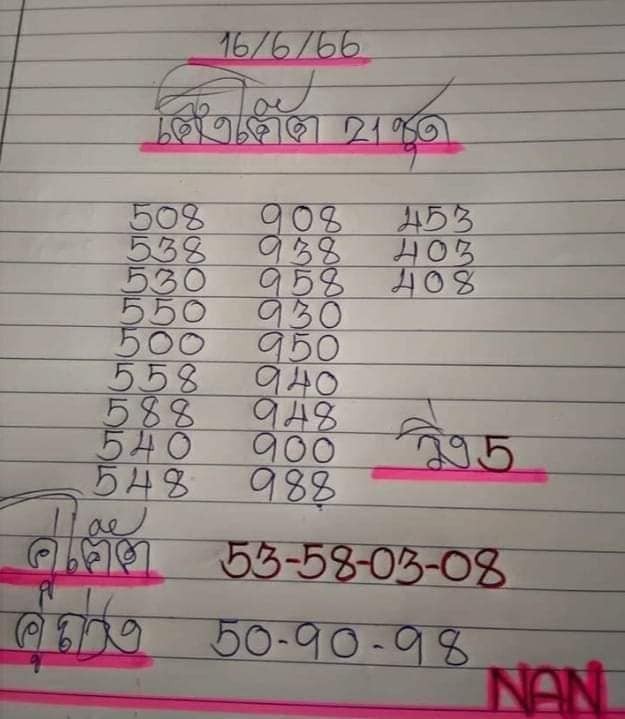 16/6/66
เต็งเด็ด 21 ชุด
508 908 453
538 938 403
530 958 408
550 930
500 950
558 940
588 948
540 900 วิ่ง 5
548 988
คู่เด็ด 53-58-03-08
50-90-98
NAN